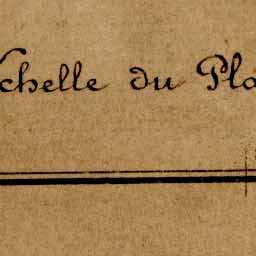 chelle du Pla